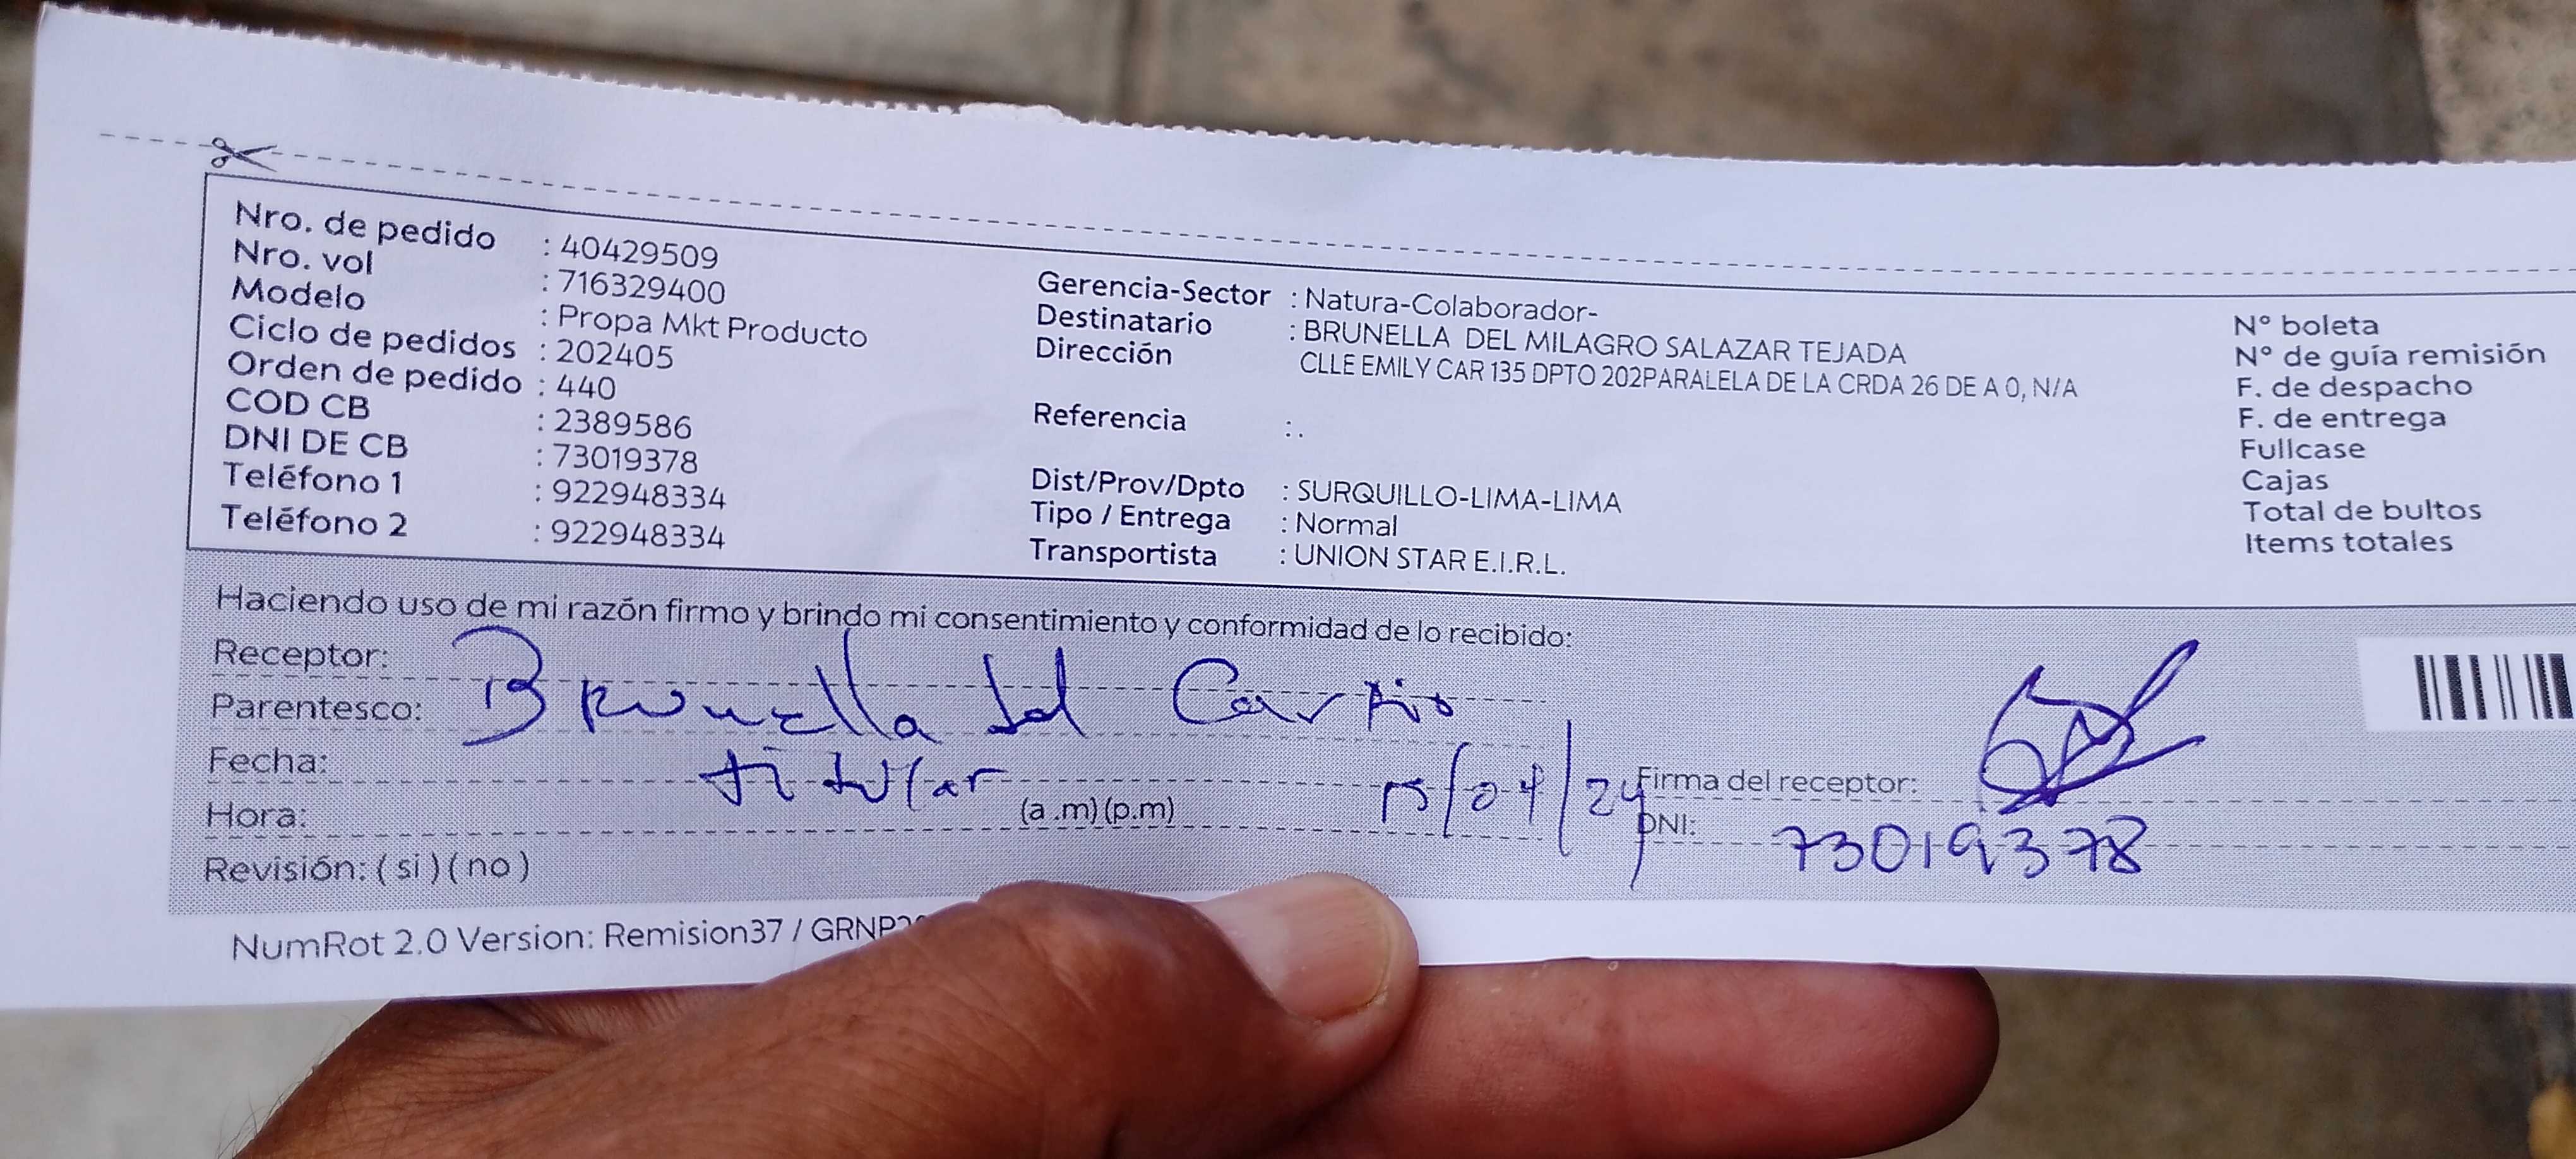 Nro. de pedido : 40429509
Nro. vol : 716329400
Modelo : Propa Mkt Producto
Ciclo de pedidos : 202405
Orden de pedido : 440
COD CB : 2389586
DNI DE CB : 73019378
Teléfono 1 : 922948334
Teléfono 2 : 922948334
Gerencia-Sector : Natura-Colaborador-
Destinatario : BRUNELLA DEL MILAGRO SALAZAR TEJADA
Dirección CLLE EMILY CAR 135 DPTO 202PARALELA DE LA CRDA 26 DE A 0, N/A
Referencia : .
Dist/Prov/Dpto : SURQUILLO-LIMA-LIMA
Tipo / Entrega : Normal
Transportista : UNION STAR E.I.R.L.
N° boleta
N° de guía remisión
F. de despacho
F. de entrega
Fullcase
Cajas
Total de bultos
Items totales
Haciendo uso de mi razón firmo y brindo mi consentimiento y conformidad de lo recibido:
Receptor:
Parentesco: Brunella del
Fecha: titular /04/24
Hora: (a .m)(p.m)
Revisión: ( si ) ( no )
Firma del receptor:
DNI: 73019378
NumRot 2.0 Version: Remision37 /